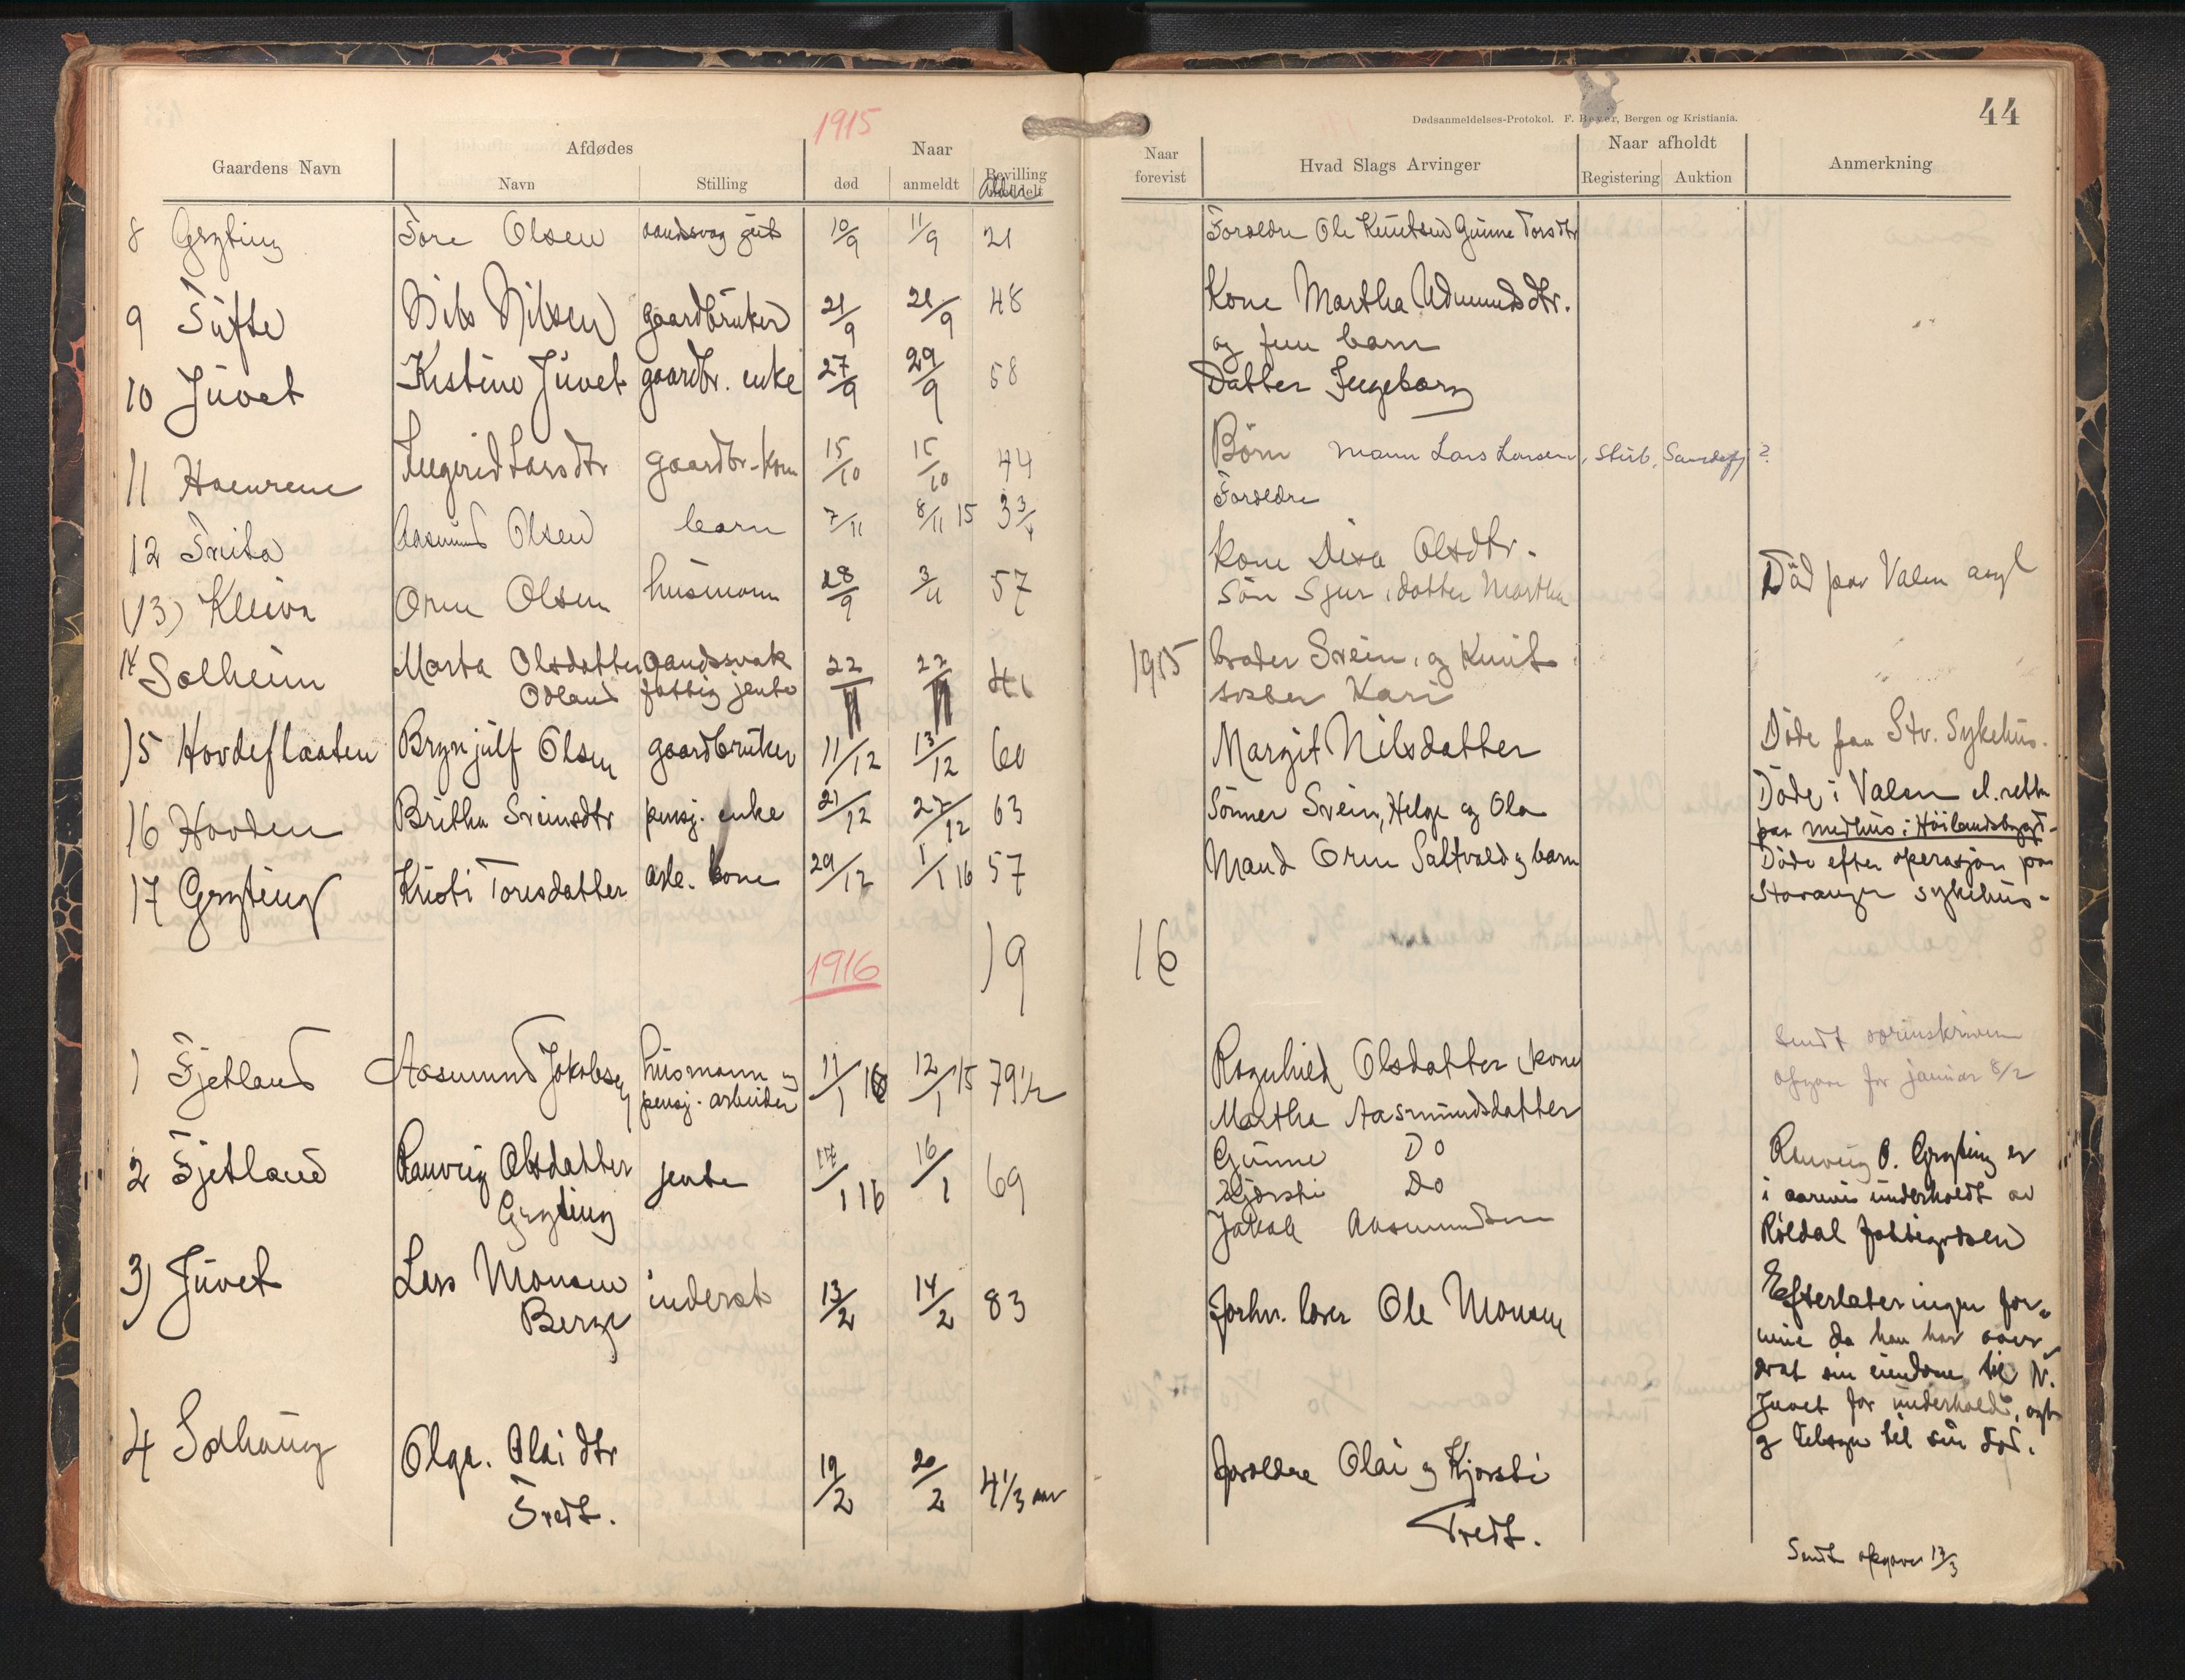 1915
44
Dødsanmeldelses-Protokol. F. Beyer, Bergen og Kristiania.
Gaardens Navn Afdødes Naar Bevilling Alder
Navn Stilling død anmeldt
Naar forevist Hvad Slags Arvinger Naar afholdt Anmerkning
Registering Auktion
8 Gryting Tore Olsen aandssvag gut 10/9 11/9 21 Foreldre Ole Knutsen Gunne Torsdtr
9 Tufte Nils Nilsen gaardbruker 21/9 21/9 48 Kone Martha Admundsdtr.
og fem barn
10 Juvet Kristine Juvet gaardbr. enke 27/9 29/9 58 Datter Ingeborg
11 Ingerid Larsdtr gaardbr-kone 15/10 15/10 44 Børn Mann Lars Larsen, Skib, Sandefj ?
12 Aasmund Olsen barn 7/11 8/11 15 3 3/4 Foreldre
13) Kleiva Orm Olsen husmann 28/9 3/11 57 Kone Olsdtr. Död paa Valen asyl
Sön Sjur, datter Martha
14 Solheim Marta Olsdatter aandssvak 22/11 22/11 41 1915 broder Svein, og Knut
Odland fattig jente søster Kari
15 Hovdeflaaten Brynjulf Olsen gaardbruker 11/12 13/12 60 Margit Nilsdatter Döde paa Stv. Sykehus.
16 Hovden Britha Sveinsdtr pensj. enke 21/12 27/12 63 Sönner Svein, Helge og Ola Döde i Valen el. rette
paa Nedhus i Höilandsbygd-
17 Gryting Kristi Toresdatter arb. kone 29/12 1/1 16 57 Mand Orm Saltvold og barn Döde efter operasjon paa
Stavanger sykehus-
1916 19 16
1 Fjetland Aasmund Jakobsen husmann og 11/1 16 12/1 15 79 1/2 Ragnhild Olsdatter kone Sendt sorenskriveren
pensj. arbeider Martha Aasmundsdatter opgave for januar 8/2
2 Fjetland Ranveig Olsdatter jente 14/1 16 16/1 69 Gunne Do Ranveig O. Gryting er
Gryting Kjersti Do i aarevis underholdt av
Jakob Aasmundsen Röldal fattigvæsen
3) Juvet Lars Monsen inderst 13/2 14/2 83 Forhv. lærer Ole Monsen Efterlater ingen for-
Berge mue da han har over-
drat sin eiendom til N.
Juvet for underhold,
og tilsyn til sin död.
4 Solhaug Olga. Olai dtr 19/2 20/2 4 1/3 aar Foreldre Olai og Kjersti
Tredt. Tredt.
Sendt opgaver 12/3